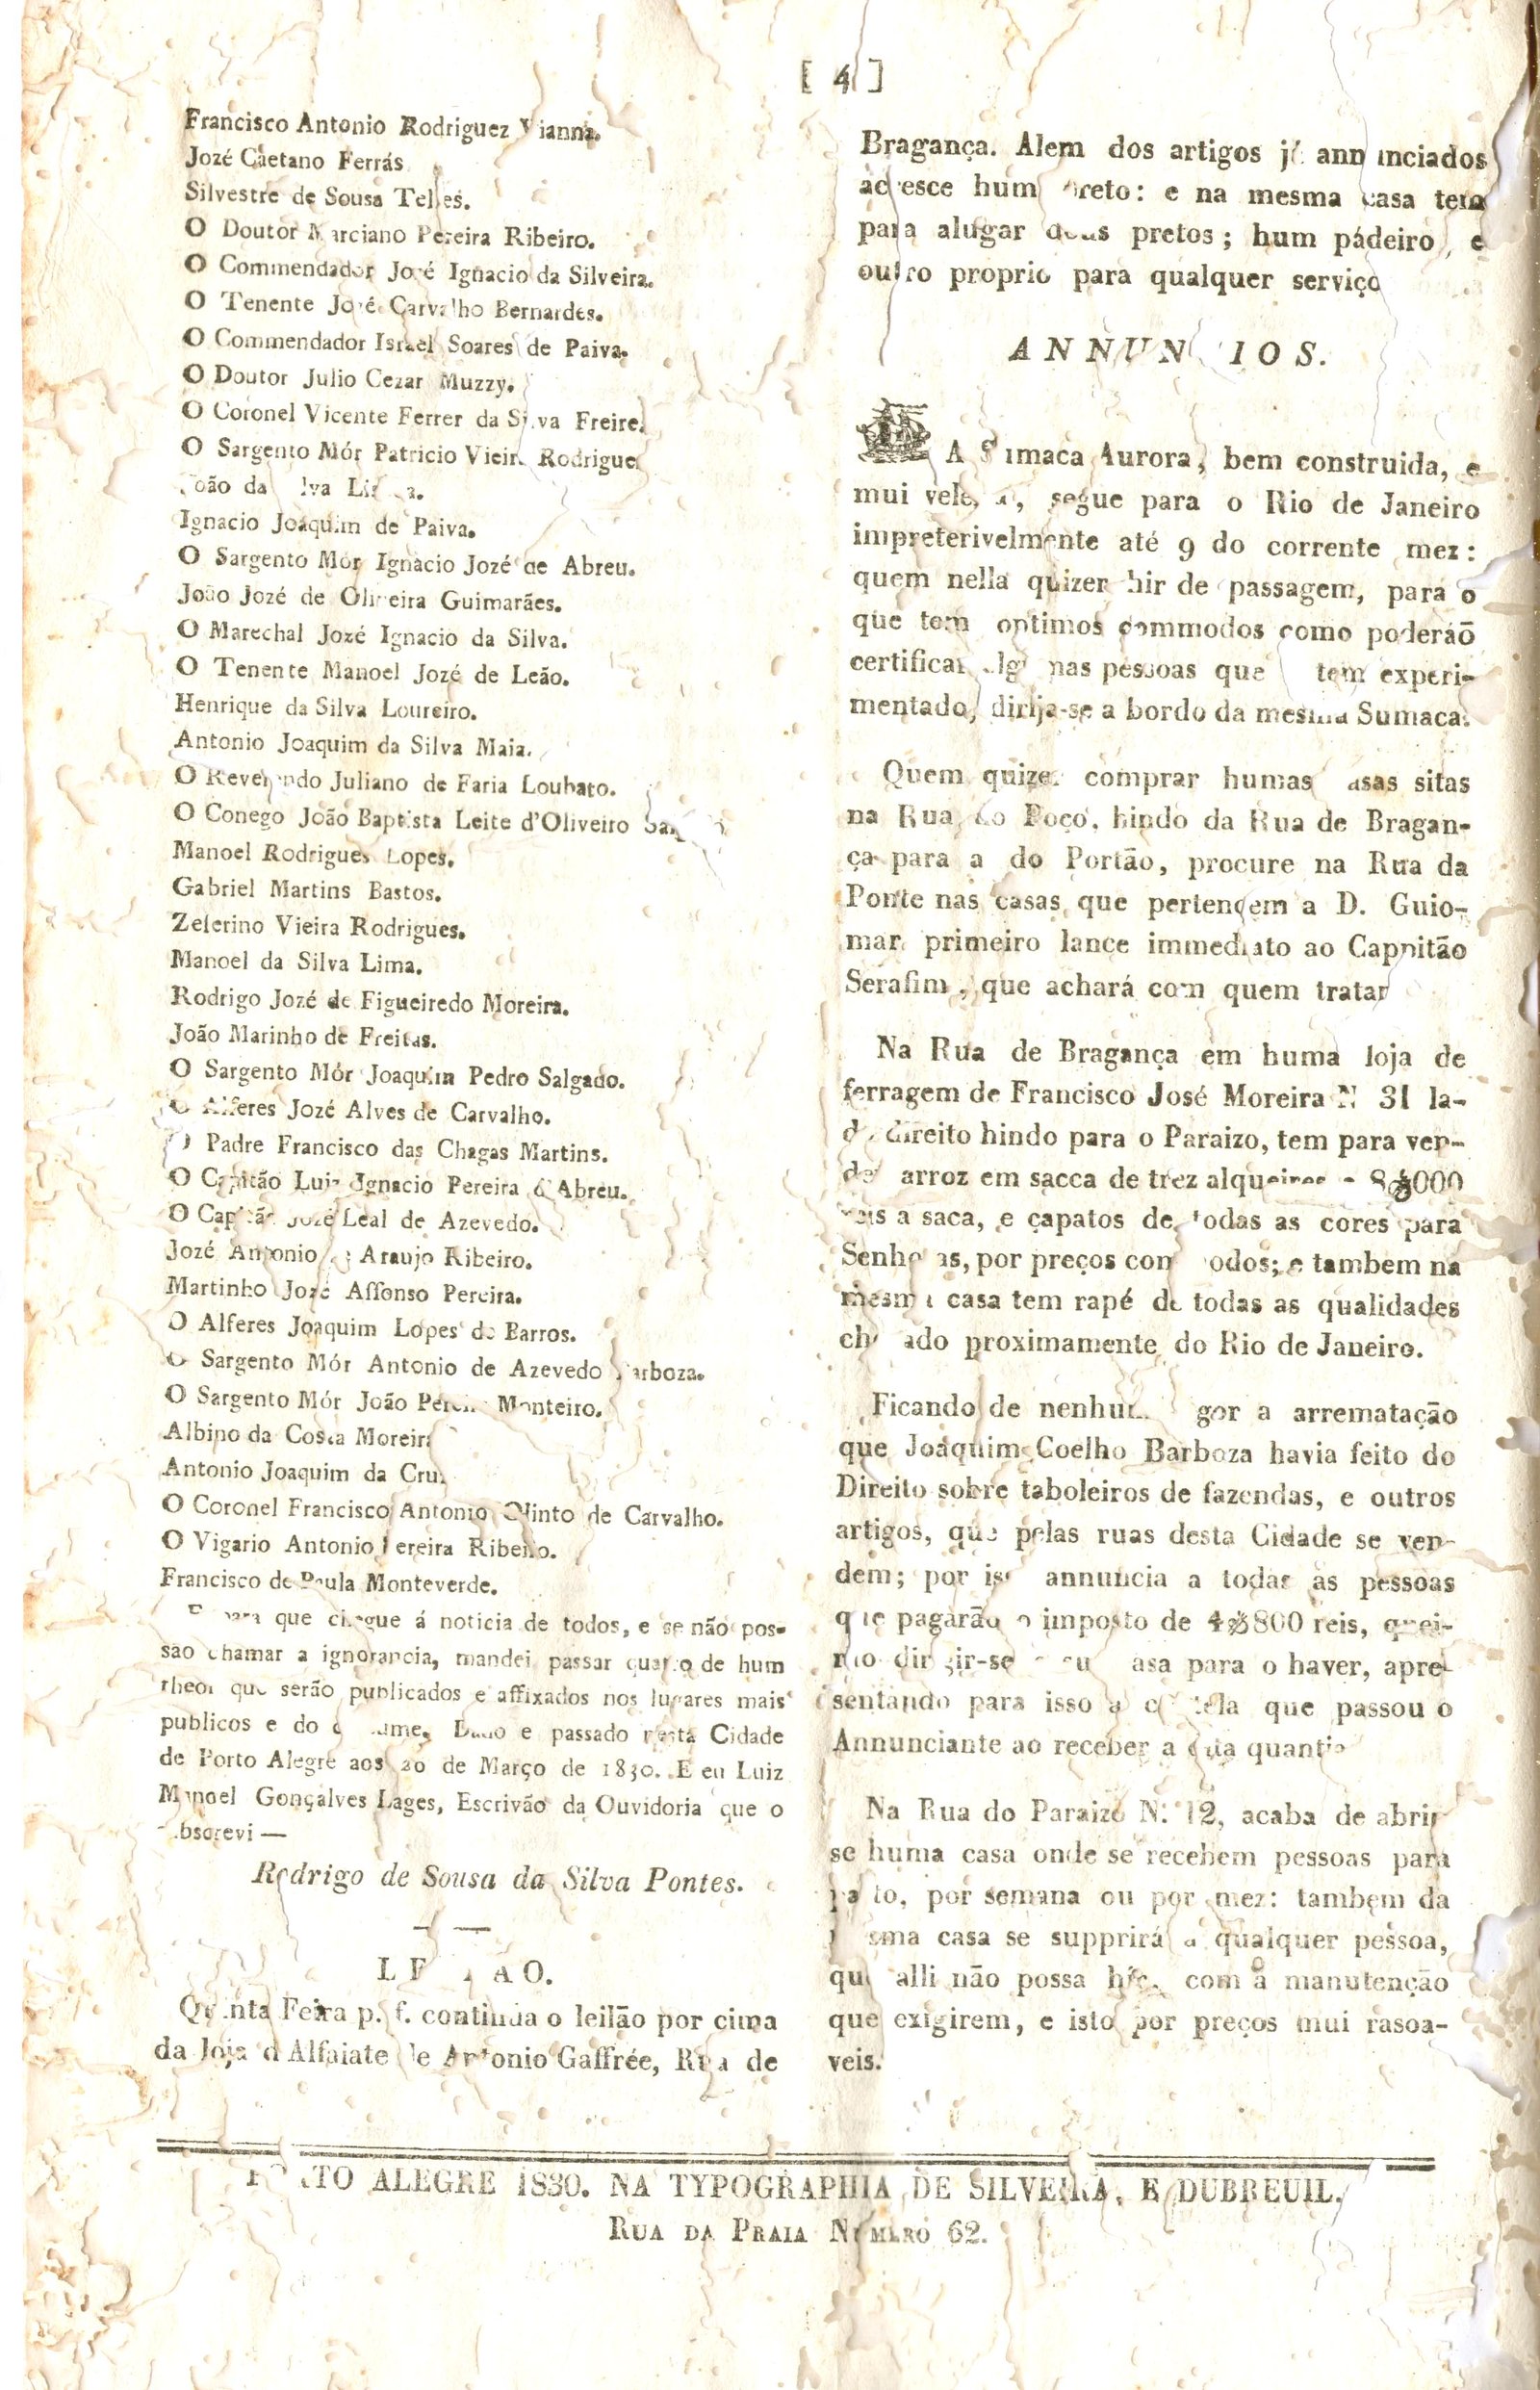 [ 4 ]
Francisco Antonio Rodriguez Vianna.
Jozé Caetano Ferrás
Silvestre de Sousa Telles.
O Doutor Marciano Pereira Ribeiro.
O Commendador José Ignacio da Silveira.
O Tenente José Carvalho Bernardes.
O Commendador Israel Soares de Paiva.
O Doutor Julio Cezar Muzzy.
O Coronel Vicente Ferrer da Silva Freire.
O Sargento Mór Patricio Vieira Rodrigues
João da Silva
Ignacio Joaquim de Paiva.
O Sargento Mór Ignacio Jozé de Abreu.
João Jozé de Oliveira Guimarães.
O Marechal Jozé Ignacio da Silva.
O Tenente Manoel Jozé de Leão.
Henrique da Silva Loureiro.
Antonio Joaquim da Silva Maia.
O Reverendo Juliano de Faria Loubato.
O Conego João Baptista Leite d'Oliveiro
Manoel Rodrigues Lopes.
Gabriel Martins Bastos.
Zeferino Vieira Rodrigues.
Manoel da Silva Lima.
Rodrigo Jozé de Figueiredo Moreira.
João Marinho de Freitas.
O Sargento Mór Joaquim Pedro Salgado.
O Alferes Jozé Alves de Carvalho.
O Padre Francisco das Chagas Martins.
O Capitão Luiz Ignacio Pereira d'Abreu.
O Capitão Jozé Leal de Azevedo.
Jozé Antonio de Araujo Ribeiro.
Martinho Jozé Affonso Pereira.
O Alferes Joaquim Lopes de Barros.
O Sargento Mór Antonio de Azevedo Barboza.
O Sargento Mór João Pereira Monteiro.
Albino da Costa Moreira
Antonio Joaquim da Cruz
O Coronel Francisco Antonio Olinto de Carvalho.
O Vigario Antonio Pereira Ribeiro.
Francisco de Paula Monteverde.
E para que chegue á noticia de todos, e se não pos-
são chamar a ignorancia, mandei passar quatro de hum
theor que serão publicados e affixados nos lugares mais
publicos e do costume. Dado e passado nesta Cidade
de Porto Alegre aos 20 de Março de 1830. E eu Luiz
Manoel Gonçalves Lages, Escrivão da Ouvidoria que o
subscrevi —
Rodrigo de Sousa da Silva Pontes.
LEILÃO.
Quinta Feira p. f. continua o leilão por cima
da loja d Alfaiate de Antonio Gaffrée, Rua de
Bragança. Alem dos artigos já annunciados
acresce hum preto: e na mesma casa tem
para alugar dous pretos; hum pádeiro, e
outro proprio para qualquer serviço
ANNUNCIOS.
A Sumaca Aurora, bem construida, e
mui veleira, segue para o Rio de Janeiro
impreterivelmente até 9 do corrente mez:
quem nella quizer hir de passagem, para o
que tem optimos commodos como poderáõ
certificar algumas pessoas que tem experi-
mentado, dirija-se a bordo da mesma Sumaca.
Quem quizer comprar humas casas sitas
na Rua do Poço, hindo da Rua de Bragan-
ça para a do Portão, procure na Rua da
Ponte nas casas que pertencem a D. Guio-
mar primeiro lance immediato ao Cappitão
Serafim, que achará com quem tratar
Na Rua de Bragança em huma loja de
ferragem de Francisco José Moreira N 31 la-
do direito hindo para o Paraizo, tem para ven-
der arroz em sacca de trez alqueires a 8$000
reis a saca, e çapatos de todas as cores para
Senhoras, por preços commodos; e tambem na
mesma casa tem rapé de todas as qualidades
chegado proximamente do Rio de Janeiro.
Ficando de nenhum vigor a arrematação
que Joaquim Coelho Barboza havia feito do
Direito sobre taboleiros de fazendas, e outros
artigos, que pelas ruas desta Cidade se ven-
dem; por isso annuncia a todas as pessoas
que pagarão o imposto de 4$800 reis, quei-
rão dirigir-se a sua casa para o haver, apre-
sentando para isso a cautela que passou o
Annunciante ao receber a dita quantia
Na Rua do Paraizo N. 12, acaba de abrir
se huma casa onde se recebem pessoas para
pasto, por semana ou por mez: tambem da
mesma casa se supprirá a qualquer pessoa,
que alli não possa hir, com a manutenção
que exigirem, e isto por preços mui rasoa-
veis.
PORTO ALEGRE 1830. NA TYPOGRAPHIA DE SILVEIRA, E DUBREUIL.
RUA DA PRAIA NUMERO 62.